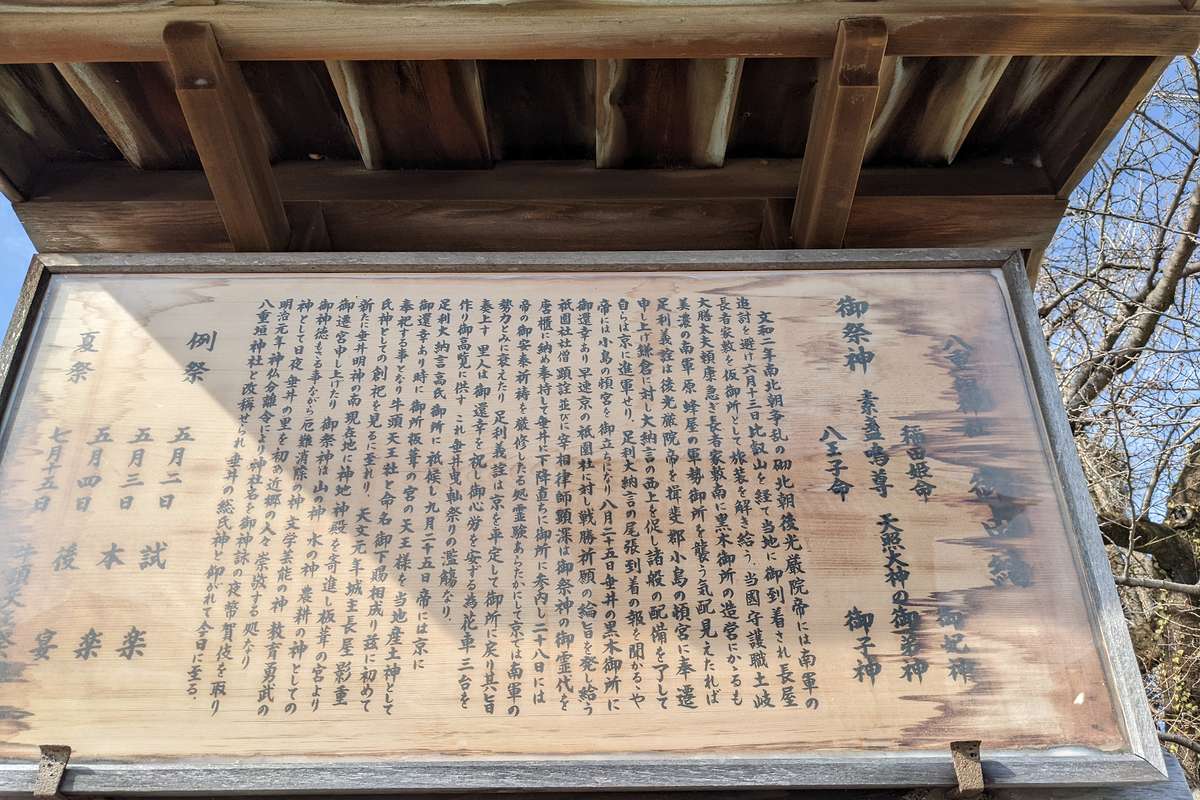 八重垣神社 御由緒
稲田姫命 御妃神
御祭神 素盞鳴尊 天照大神の御弟神
八王子命 御子神
文和二年南北朝争乱の砌北朝後光厳院帝には南軍の
追討を避け六月十三日比叡山を経て当地に御到着され長屋
長者家敷を仮御所として旅装を解き給う、当國守護職土岐
大膳大夫頼康急ぎ長者家敷南に黒木御所の造営にかゝるも
美濃の南軍原蜂屋の軍勢御所を襲う気配見えたれば
足利義詮は後光厳院帝を揖斐郡小島の頓宮に奉遷
申し上げ鎌倉に対し大納言の西上を促し諸般の配備を了して
自らは京に進軍せり、足利大納言の尾張到着の報を聞かるゝや
帝には小島の頓宮を御立ちになり八月二十五日垂井の黒木御所に
御還幸あり早速京の祇園社に対し戦勝祈願の綸旨を発し給う
祇園社社僧顕詮並びに宰相律師顕深は御祭神の御霊代を
唐櫃に納め奉持して垂井に下降直ちに御所に参内し二十八日には
帝の御安泰祈祷を厳修したる処霊験あらたかにして京では南軍の
勢力とみに衰えたり、足利義詮は京を平定して御所に戻り其の旨
奏上す 里人は御還幸を祝し御心労を安する為花車三台を
作り御高覧に供す これ垂井曳軕祭りの濫觴なり、
足利大納言高氏御所に祇候し九月二十五日帝には京に
御還幸あり時に御所板葺の宮の天王様を当地産土神として
奉祀する事となり牛頭天王社と命名御下賜相成り茲に初めて
氏神としての創祀を見るに至れり、天文元年城主長屋影重
新たに垂井明神の南現在地に神地神殿を寄進し板葺の宮より
御遷宮申し上げたり御祭神は山の神 水の神 農耕の神としての
御神徳もさる事ながら厄難消除の神 文学芸能の神 教育勇武の
神として日夜垂井の里を初め近郷の人々崇敬する処なり
明治元年神仏分離令により神社名を御神詠の夜幣賀伎を取り
八重垣神社と改稱せられ垂井の総氏神と仰がれて今日に至る、
例祭 五月二日 試楽
五月三日 本楽
五月四日 後宴
夏祭 七月十五日